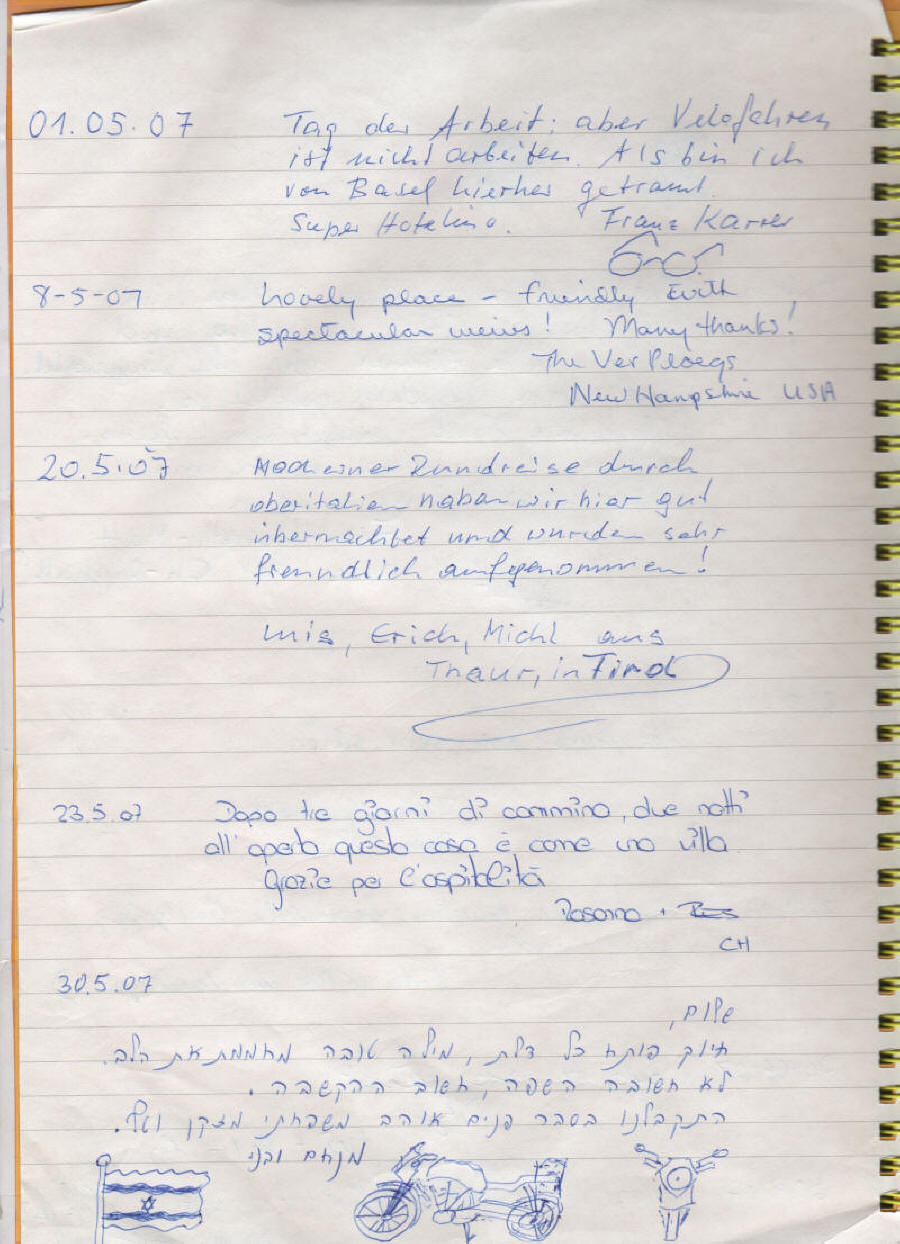 01.05.07 Tag der Arbeit; aber Velofahren
ist nicht arbeiten. Als bin ich
von Basel hierher getramt.
Super Franz Karrer
8-5-07 Lovely place - friendly
spectacular views! Many thanks!
The VerPloegs
New Hampshire USA
20.5.07 Nach einer Rundreise durch
oberitalien haben wir hier gut
übernachtet und wurden sehr
freundlich aufgenommen!
Erich, Michl aus
Thaur, in Tirol
23.5.07 Dopo tre giorni di cammino, due notti
all'aperto questa casa è come una villa
Grazie per l'ospitalità
CH
30.5.07
שלום,
חיוך פותח כל דלת, מילה טובה מחממת את הלב.
לא חשובה השפה, חשוב ההקשבה.
התקבלנו בסבר פנים אוהב משפחתי
מנחם ובני